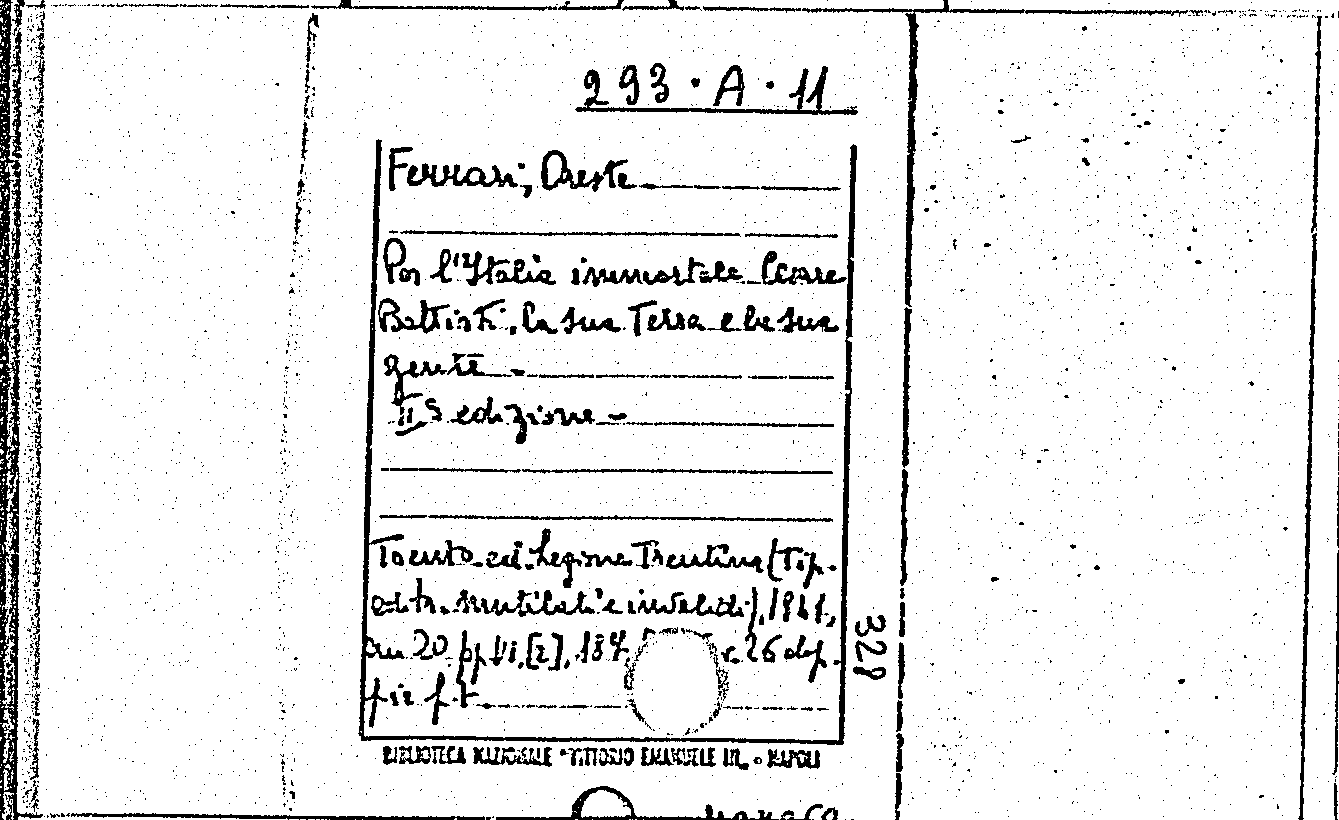 293 · A · 11
Ferrari, Oreste
Per l'Italia immortale Cesare
Battisti, la sua Terra e la sua
gente -
II edizione -
Trento ed. Legione Trentina (Tip.
editr. mutilati e invalidi), 1941,
cm 20 pp VI, [2], 187, 26 dop.
fiz f. t.
328
BIBLIOTECA NAZIONALE "VITTORIO EMANUELE III" - NAPOLI